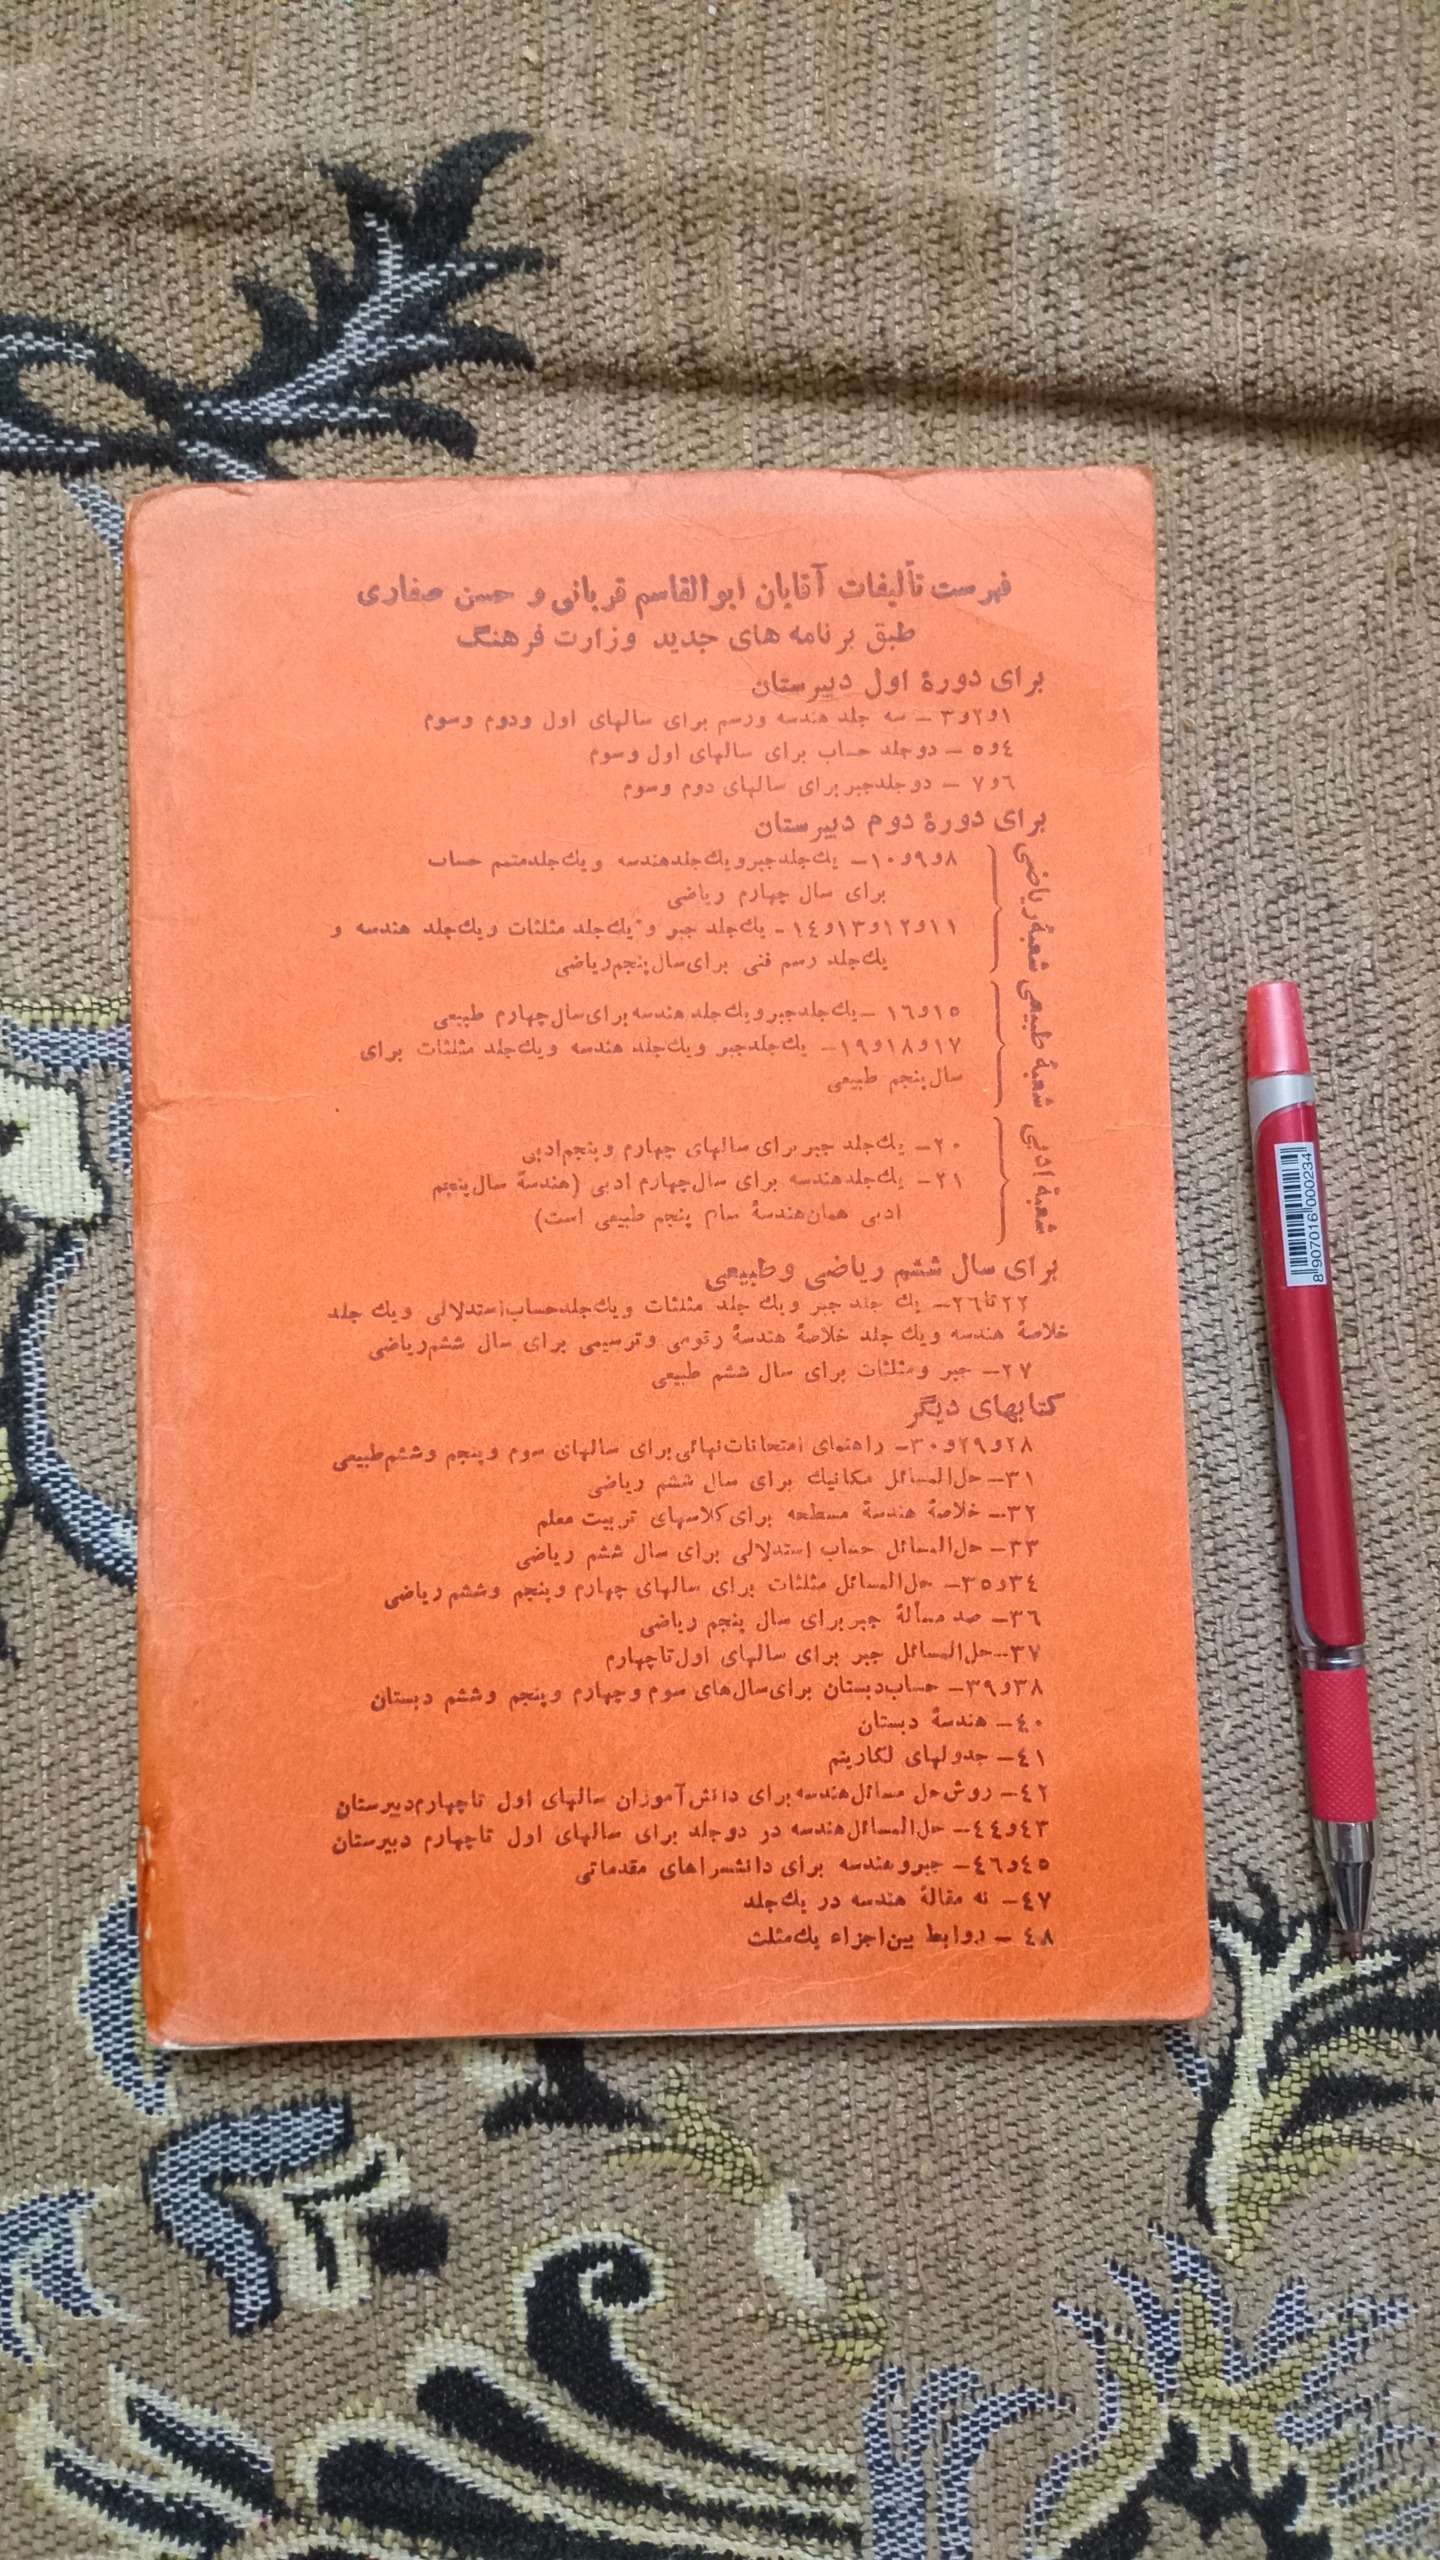 فهرست تألیفات آقایان ابوالقاسم قربانی و حسن صفاری
طبق برنامه های جدید وزارت فرهنگ
برای دورهٔ اول دبیرستان
۱و۲و۳ - سه جلد هندسه ورسم برای سالهای اول ودوم وسوم
٤و٥ - دوجلد حساب برای سالهای اول وسوم
٦و۷ - دوجلدجبر برای سالهای دوم وسوم
برای دورهٔ دوم دبیرستان
شعبهٔ ریاضی
۸و۹و۱۰- یك‌جلدجبرویك‌جلدهندسه ویك‌جلدمتمم حساب
برای سال چهارم ریاضی
۱۱و۱۲و۱۳و۱٤- یك‌جلد جبر ویك‌جلد مثلثات ویك‌جلد هندسه و
یك‌جلد رسم فنی برای‌سال‌پنجم‌ریاضی
شعبهٔ طبیعی
۱٥و۱٦ -یك‌جلدجبرویك‌جلد هندسه‌برای‌سال‌چهارم طبیعی
۱۷و۱۸و۱۹- یك‌جلدجبر ویك‌جلد هندسه ویك‌جلد مثلثات برای
سال‌پنجم طبیعی
شعبهٔ ادبی
۲۰- یك‌جلد جبر برای سالهای چهارم وپنجم‌ادبی
۲۱- یك‌جلدهندسه برای سال‌چهارم ادبی (هندسهٔ سال‌پنجم
ادبی همان‌هندسهٔ سام پنجم طبیعی است)
برای سال ششم ریاضی وطبیعی
۲۲تا۲٦- یك جلد جبر ویك جلد مثلثات ویك‌جلدحساب‌استدلالی ویك جلد
خلاصهٔ هندسه ویك جلد خلاصهٔ هندسهٔ رقومی وترسیمی برای سال ششم‌ریاضی
۲۷- جبر ومثلثات برای سال ششم طبیعی
کتابهای دیگر
۲۸و۲۹و۳۰- راهنمای امتحانات‌نهائی‌برای سالهای سوم وپنجم وششم‌طبیعی
۳۱- حل‌المسائل مکانیك برای سال ششم ریاضی
۳۲- خلاصهٔ هندسهٔ مسطحه برای‌کلاسهای تربیت معلم
۳۳- حل‌المسائل حساب استدلالی برای سال ششم ریاضی
۳٤و۳٥- حل‌المسائل مثلثات برای سالهای چهارم وپنجم وششم‌ریاضی
۳٦- صد مسألهٔ جبربرای سال پنجم ریاضی
۳۷-حل‌المسائل جبر برای سالهای اول‌تاچهارم
۳۸و۳۹- حساب‌دبستان برای‌سال‌های سوم وچهارم وپنجم وششم دبستان
٤۰- هندسهٔ دبستان
٤۱- جدولهای لگاریتم
٤۲- روش‌حل مسائل‌هندسه‌برای دانش‌آموزان سالهای اول تاچهارم‌دبیرستان
٤۳و٤٤- حل‌المسائل‌هندسه در دوجلد برای سالهای اول تاچهارم دبیرستان
٤٥و٤٦- جبروهندسه برای دانشسراهای مقدماتی
٤۷- نه مقالهٔ هندسه در یك‌جلد
٤۸ - روابط بین‌اجزاء یك‌مثلث
8 907016 000234